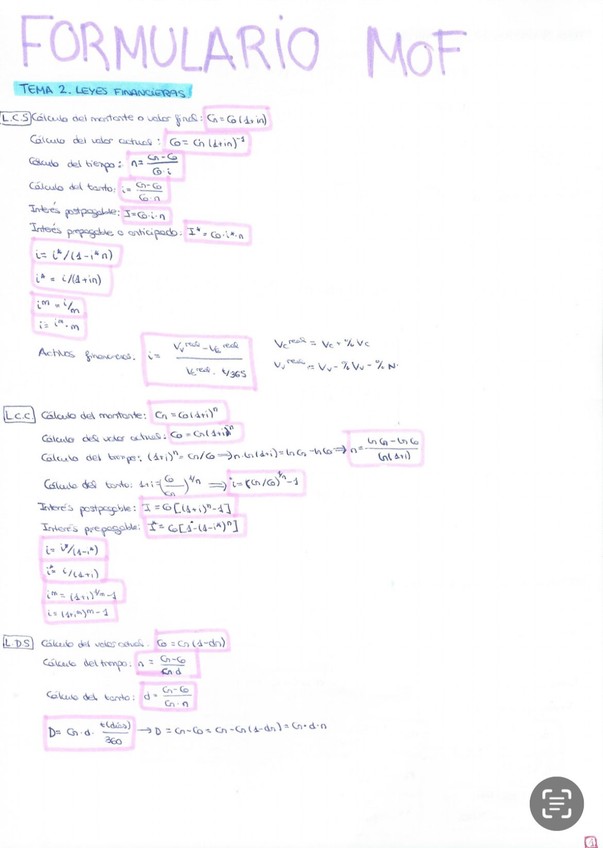 FORMULARIO MOF
TEMA 2. LEYES FINANCIERAS
L.C.S Cálculo del montante o valor final: Cn = Co(1+in)
Cálculo del valor actual: Co = Cn (1+in)⁻¹
Cálculo del tiempo: n = (Cn-Co)/(Co·i)
Cálculo del tanto: i = (Cn-Co)/(Co·n)
Interés postpagable: I = Co·i·n
Interés prepagable o anticipado: I* = Co·i*·n
i = i*/(1-i*n)
i* = i/(1+in)
iᵐ = i/m
i = iᵐ·m
Activos financieros. i = (Vv real - Vc real)/(Vc real · t/365)
Vc real = Vc + % Vc
Vv real = Vv - % Vv - % N
L.C.C Cálculo del montante: Cn = Co(1+i)ⁿ
Cálculo del valor actual: Co = Cn(1+i)⁻ⁿ
Cálculo del tiempo: (1+i)ⁿ = Cn/Co ⇒ n·ln(1+i) = ln Cn - ln Co ⇒ n = (ln Cn - ln Co)/(ln(1+i))
Cálculo del tanto: 1+i = (Co/Cn)^1/n ⇒ i = (Cn/Co)^1/n - 1
Interés postpagable: I = Co[(1+i)ⁿ-1]
Interés prepagable: I* = Co[1-(1-i*)ⁿ]
i = i*/(1-i*)
i* = i/(1+i)
iᵐ = (1+i)^1/m - 1
i = (1+iᵐ)ᵐ - 1
L.D.S Cálculo del valor actual. Co = Cn(1-dn)
Cálculo del tiempo: n = (Cn-Co)/(Cn·d)
Cálculo del tanto: d = (Cn-Co)/(Cn·n)
D = Cn·d· t(días)/360 → D = Cn-Co = Cn-Cn(1-dn) = Cn·d·n